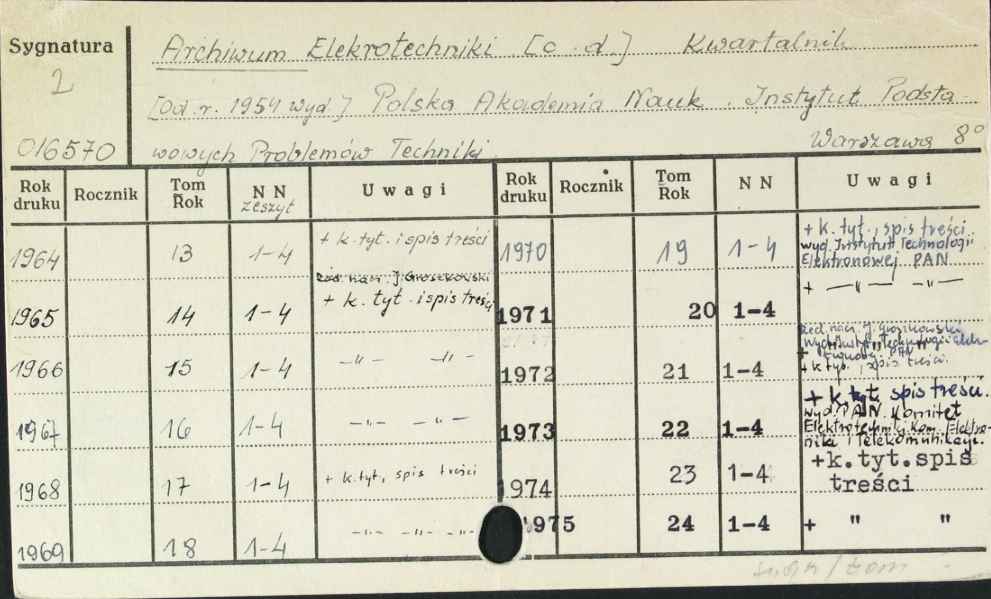 Sygnatura
2
016570
Archiwum Elekrotechniki [c.d.] Kwartalnik
[Od r. 1954 wyd] Polska Akademia Nauk. Instytut Podsta-
wowych Problemów Techniki. Warszawa 8°
Rok druku Rocznik Tom Rok NN zeszyt Uwagi Rok druku Rocznik Tom Rok NN Uwagi
1964 13 1-4 + k. tyt. i spis treści
1965 14 1-4 Red. nacz. J. Groszkowski + k. tyt. i spis treści
1966 15 1-4 -"- -"-
1967 16 1-4 -"- -"-
1968 17 1-4 + k. tyt., spis treści
1969 18 1-4 -"- -"- -"-
1970 19 1-4 + k. tyt., spis treści
wyd. Instytut Technologii
Elektronowej PAN
1971 20 1-4 + -"- -"-
1972 21 1-4 Red. nacz. J. Groszkowski
+ k. tyt., spis treści.
1973 22 1-4 + k. tyt. spis treści.
wyd. PAN. Komitet
Elektrotechniki, Kom. Elektro-
nika i Telekomunikacji.
1974 23 1-4 +k.tyt.spis
treści
1975 24 1-4 + " "